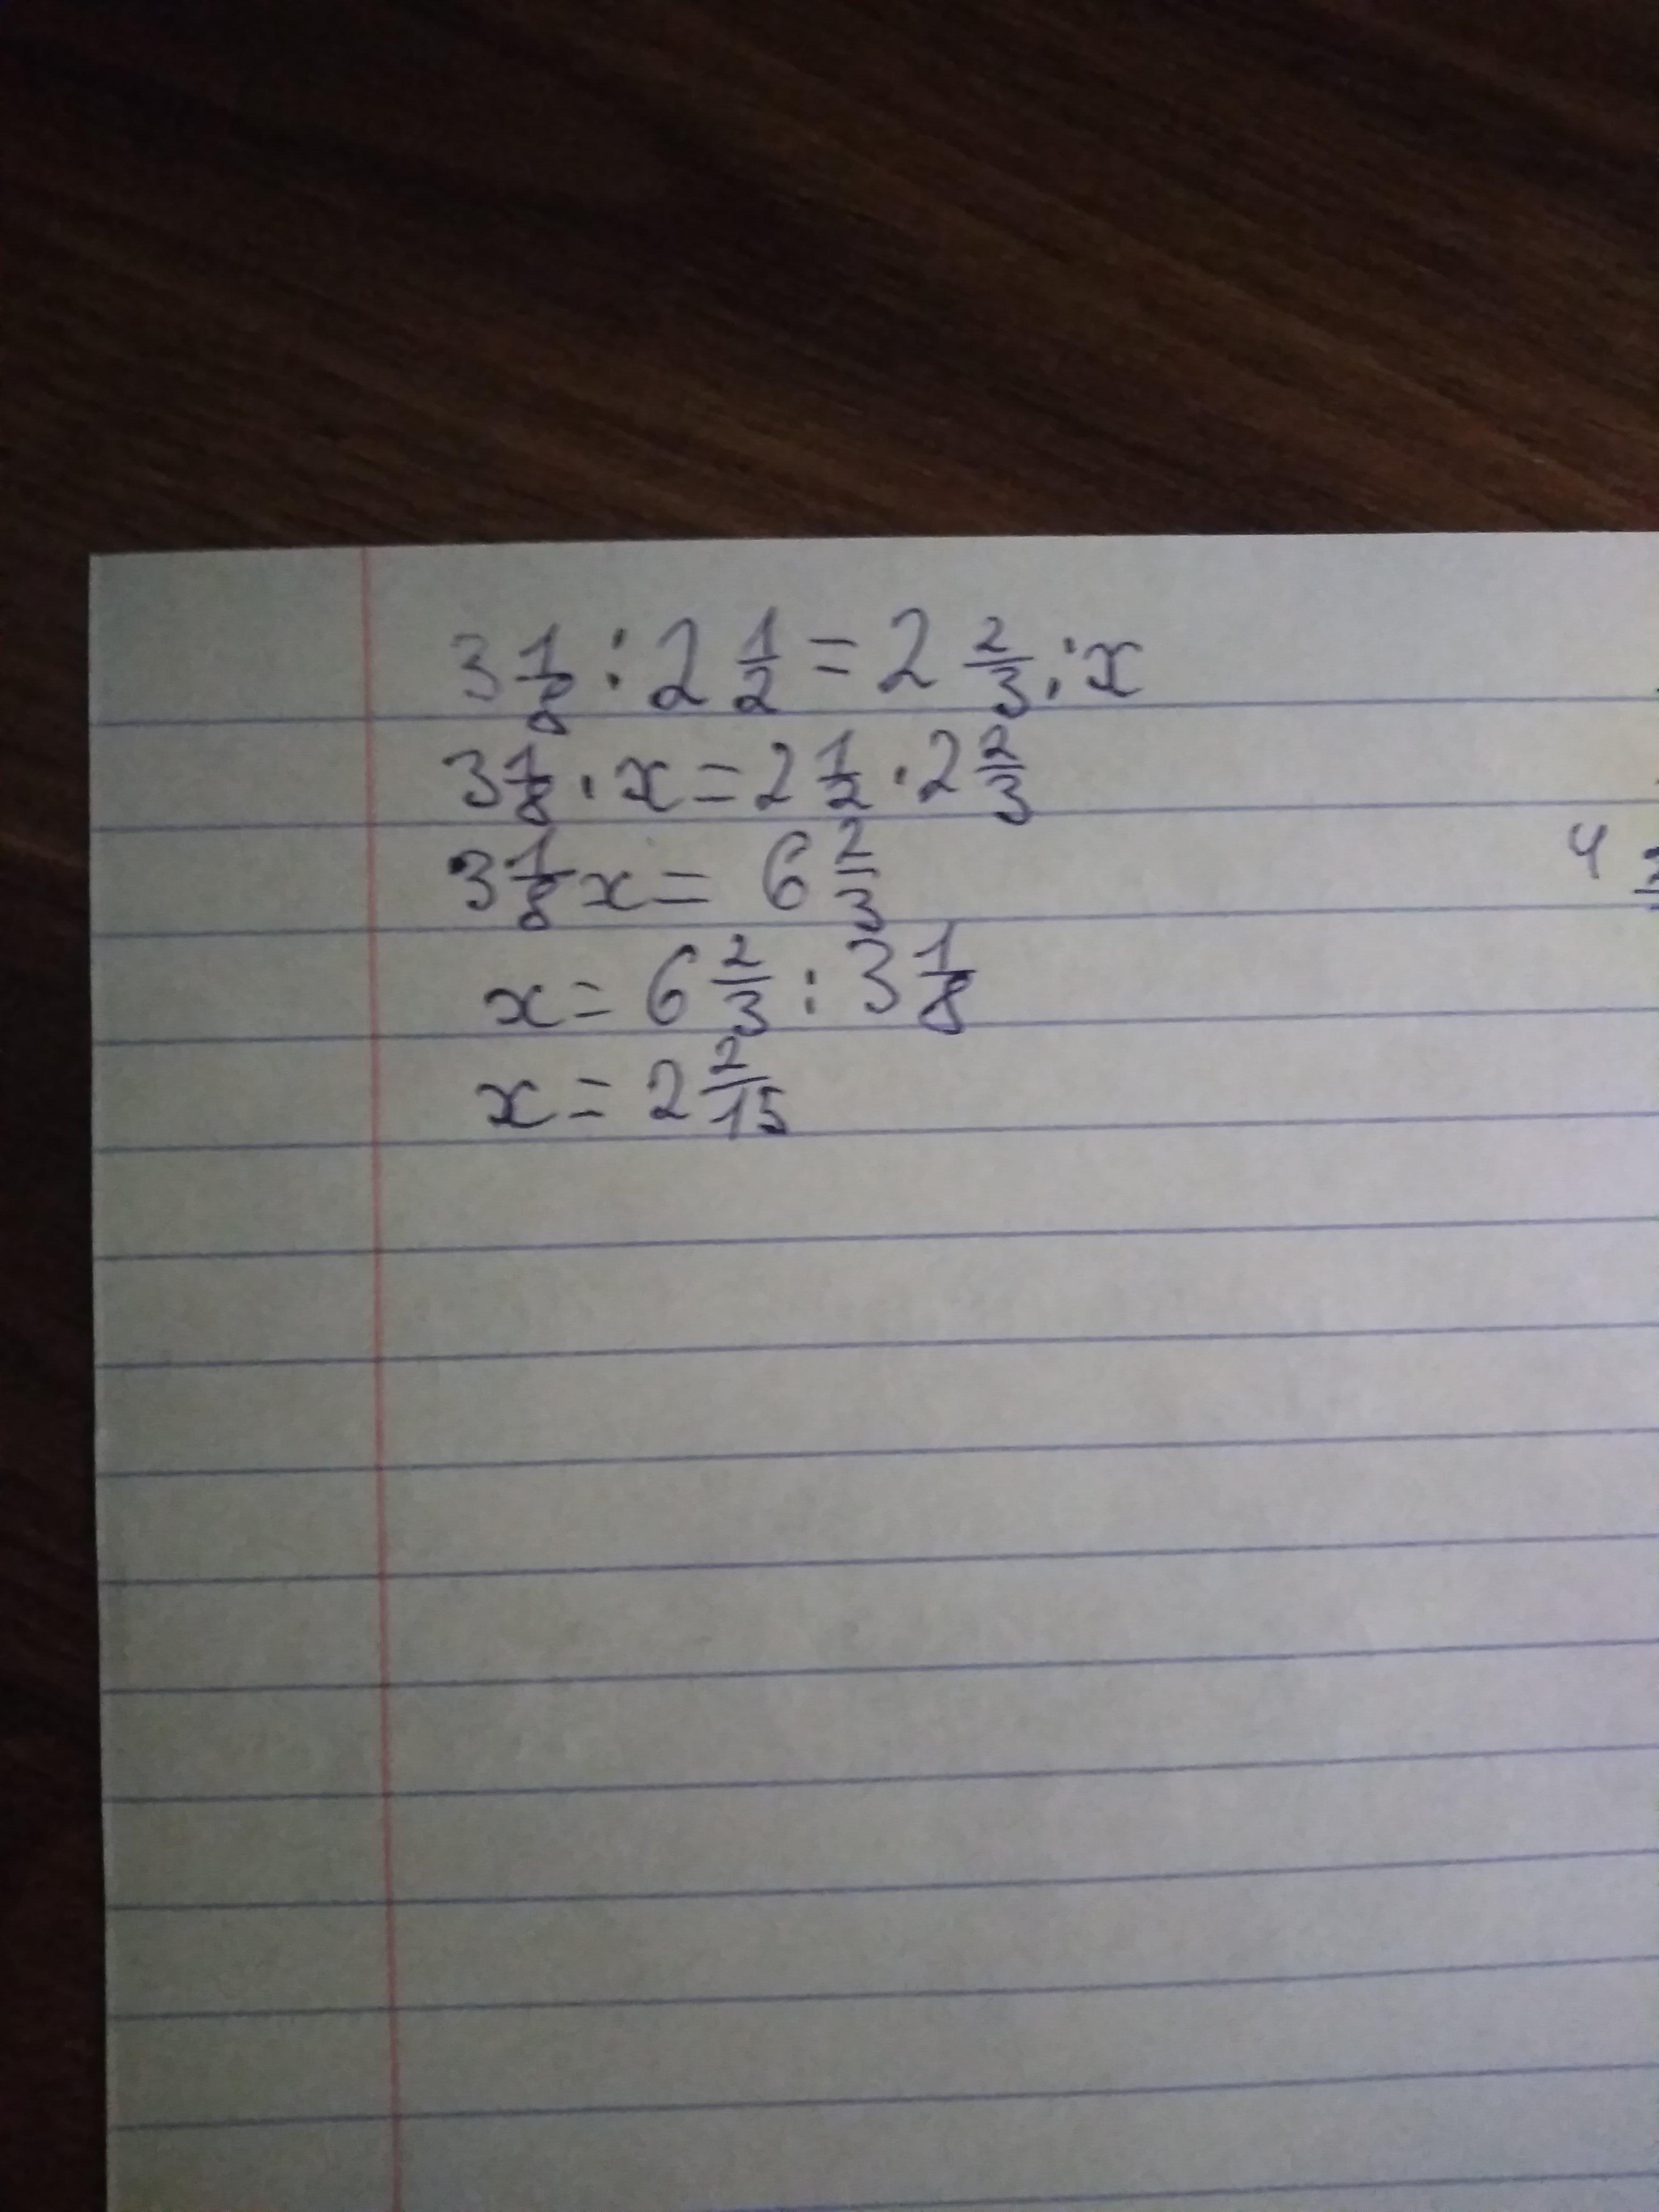 3 1/8 : 2 1/2 = 2 2/3 : x
3 1/8 · x = 2 1/2 · 2 2/3
3 1/8 x = 6 2/3
x = 6 2/3 : 3 1/8
x = 2 2/15
4